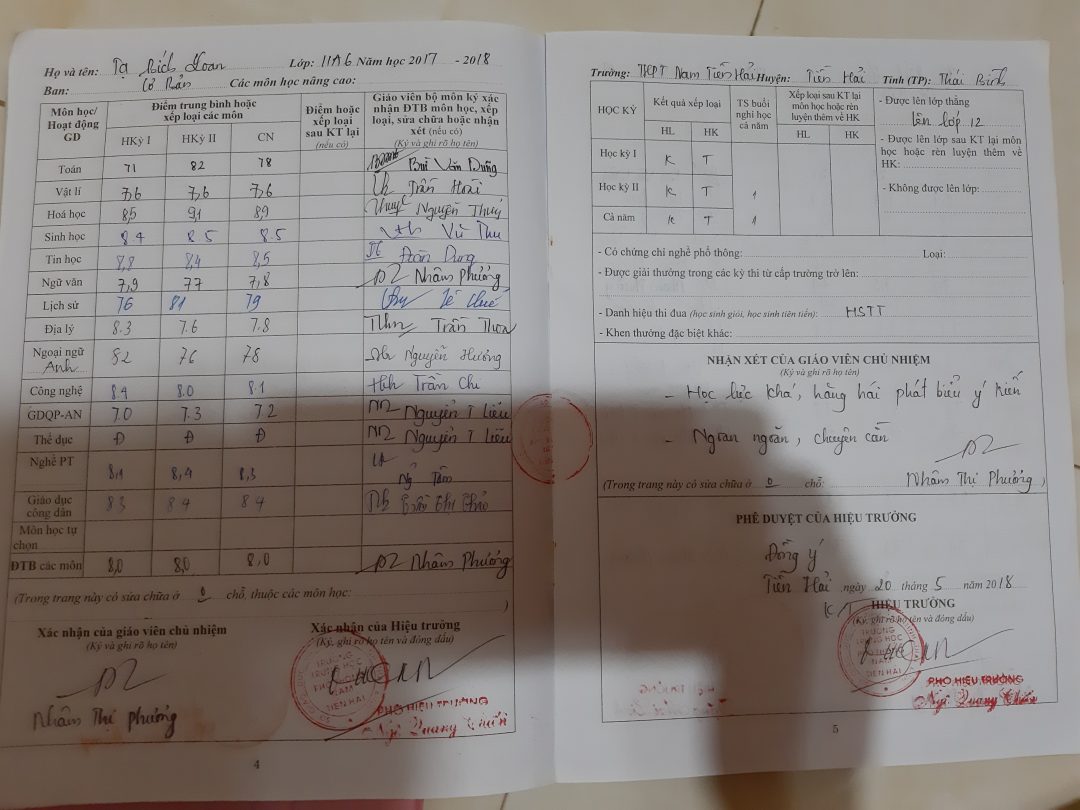 Họ và tên: Tạ Bích Loan Lớp: 11A6 Năm học 2017 - 2018
Ban: Cơ Bản Các môn học nâng cao:
Môn học/ Hoạt động GD | Điểm trung bình hoặc xếp loại các môn | Điểm hoặc xếp loại sau KT lại (nếu có) | Giáo viên bộ môn ký xác nhận ĐTB môn học, xếp loại, sửa chữa hoặc nhận xét (nếu có) (Ký và ghi rõ họ tên)
HKỳ I HKỳ II CN
Toán 71 82 78 Bùi Văn Dũng
Vật lí 7,6 7,6 7,6 Trần Hoài
Hoá học 8,5 9,1 8,9 Nguyễn Thuý
Sinh học 8.4 8.5 8.5 Vũ Thu
Tin học 8,8 8,4 8,5 Đoàn Dung
Ngữ văn 7,9 77 7,8 Nhâm Phượng
Lịch sử 76 81 79
Địa lý 8.3 7.6 7.8 Trần Thoa
Ngoại ngữ Anh 82 76 78 Nguyễn Hường
Công nghệ 8.4 8.0 8.1 Trần Chi
GDQP-AN 7.0 7.3 7.2 Nguyễn T Liễu
Thể dục Đ Đ Đ Nguyễn T Liễu
Nghề PT 8,1 8,4 8,3
Giáo dục công dân 83 84 84
Môn học tự chọn
ĐTB các môn 8,0 8,0 8,0 Nhâm Phượng
(Trong trang này có sửa chữa ở 0 chỗ, thuộc các môn học:
)
Xác nhận của giáo viên chủ nhiệm
(Ký và ghi rõ họ tên)
Nhâm Thị Phượng
Xác nhận của Hiệu trưởng
(Ký, ghi rõ họ tên và đóng dấu)
TRƯỜNG TRUNG HỌC PHỔ THÔNG NAM TIỀN HẢI
PHÓ HIỆU TRƯỞNG
Ngô Quang
4
Trường: THPT Nam Tiền Hải Huyện: Tiền Hải Tỉnh (TP): Thái Bình
HỌC KỲ | Kết quả xếp loại | TS buổi nghỉ học cả năm | Xếp loại sau KT lại môn học hoặc rèn luyện thêm về HK
HL HK HL HK
Học kỳ I K T
Học kỳ II K T 1
Cả năm K T 1
- Được lên lớp thẳng
lên lớp 12
- Được lên lớp sau KT lại môn học hoặc rèn luyện thêm về HK:
- Không được lên lớp:
- Có chứng chỉ nghề phổ thông: Loại:
- Được giải thưởng trong các kỳ thi từ cấp trường trở lên:
- Danh hiệu thi đua (học sinh giỏi, học sinh tiên tiến): HSTT
- Khen thưởng đặc biệt khác:
NHẬN XÉT CỦA GIÁO VIÊN CHỦ NHIỆM
(Ký và ghi rõ họ tên)
- Học lực khá, hăng hái phát biểu ý kiến
- Ngoan ngoãn, chuyên cần
Nhâm Thị Phượng
(Trong trang này có sửa chữa ở 0 chỗ: )
PHÊ DUYỆT CỦA HIỆU TRƯỞNG
Đồng ý
Tiền Hải, ngày 20 tháng 5 năm 2018
K/T HIỆU TRƯỞNG
(Ký, ghi rõ họ tên và đóng dấu)
TRƯỜNG TRUNG HỌC PHỔ THÔNG NAM TIỀN HẢI
PHÓ HIỆU TRƯỞNG
Ngô Quang
5